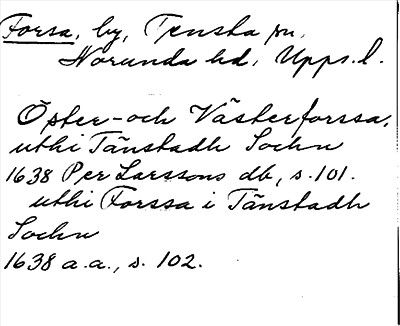 Forsa, by, Tensta sn,
Norunda hd, Upps. l.
Öster- och Västerforssa,
uthi Tänstadh Sochn
1638 Per Larssons db, s. 101.
uthi Forssa i Tänstadh
Sochn
1638 a.a., s. 102.